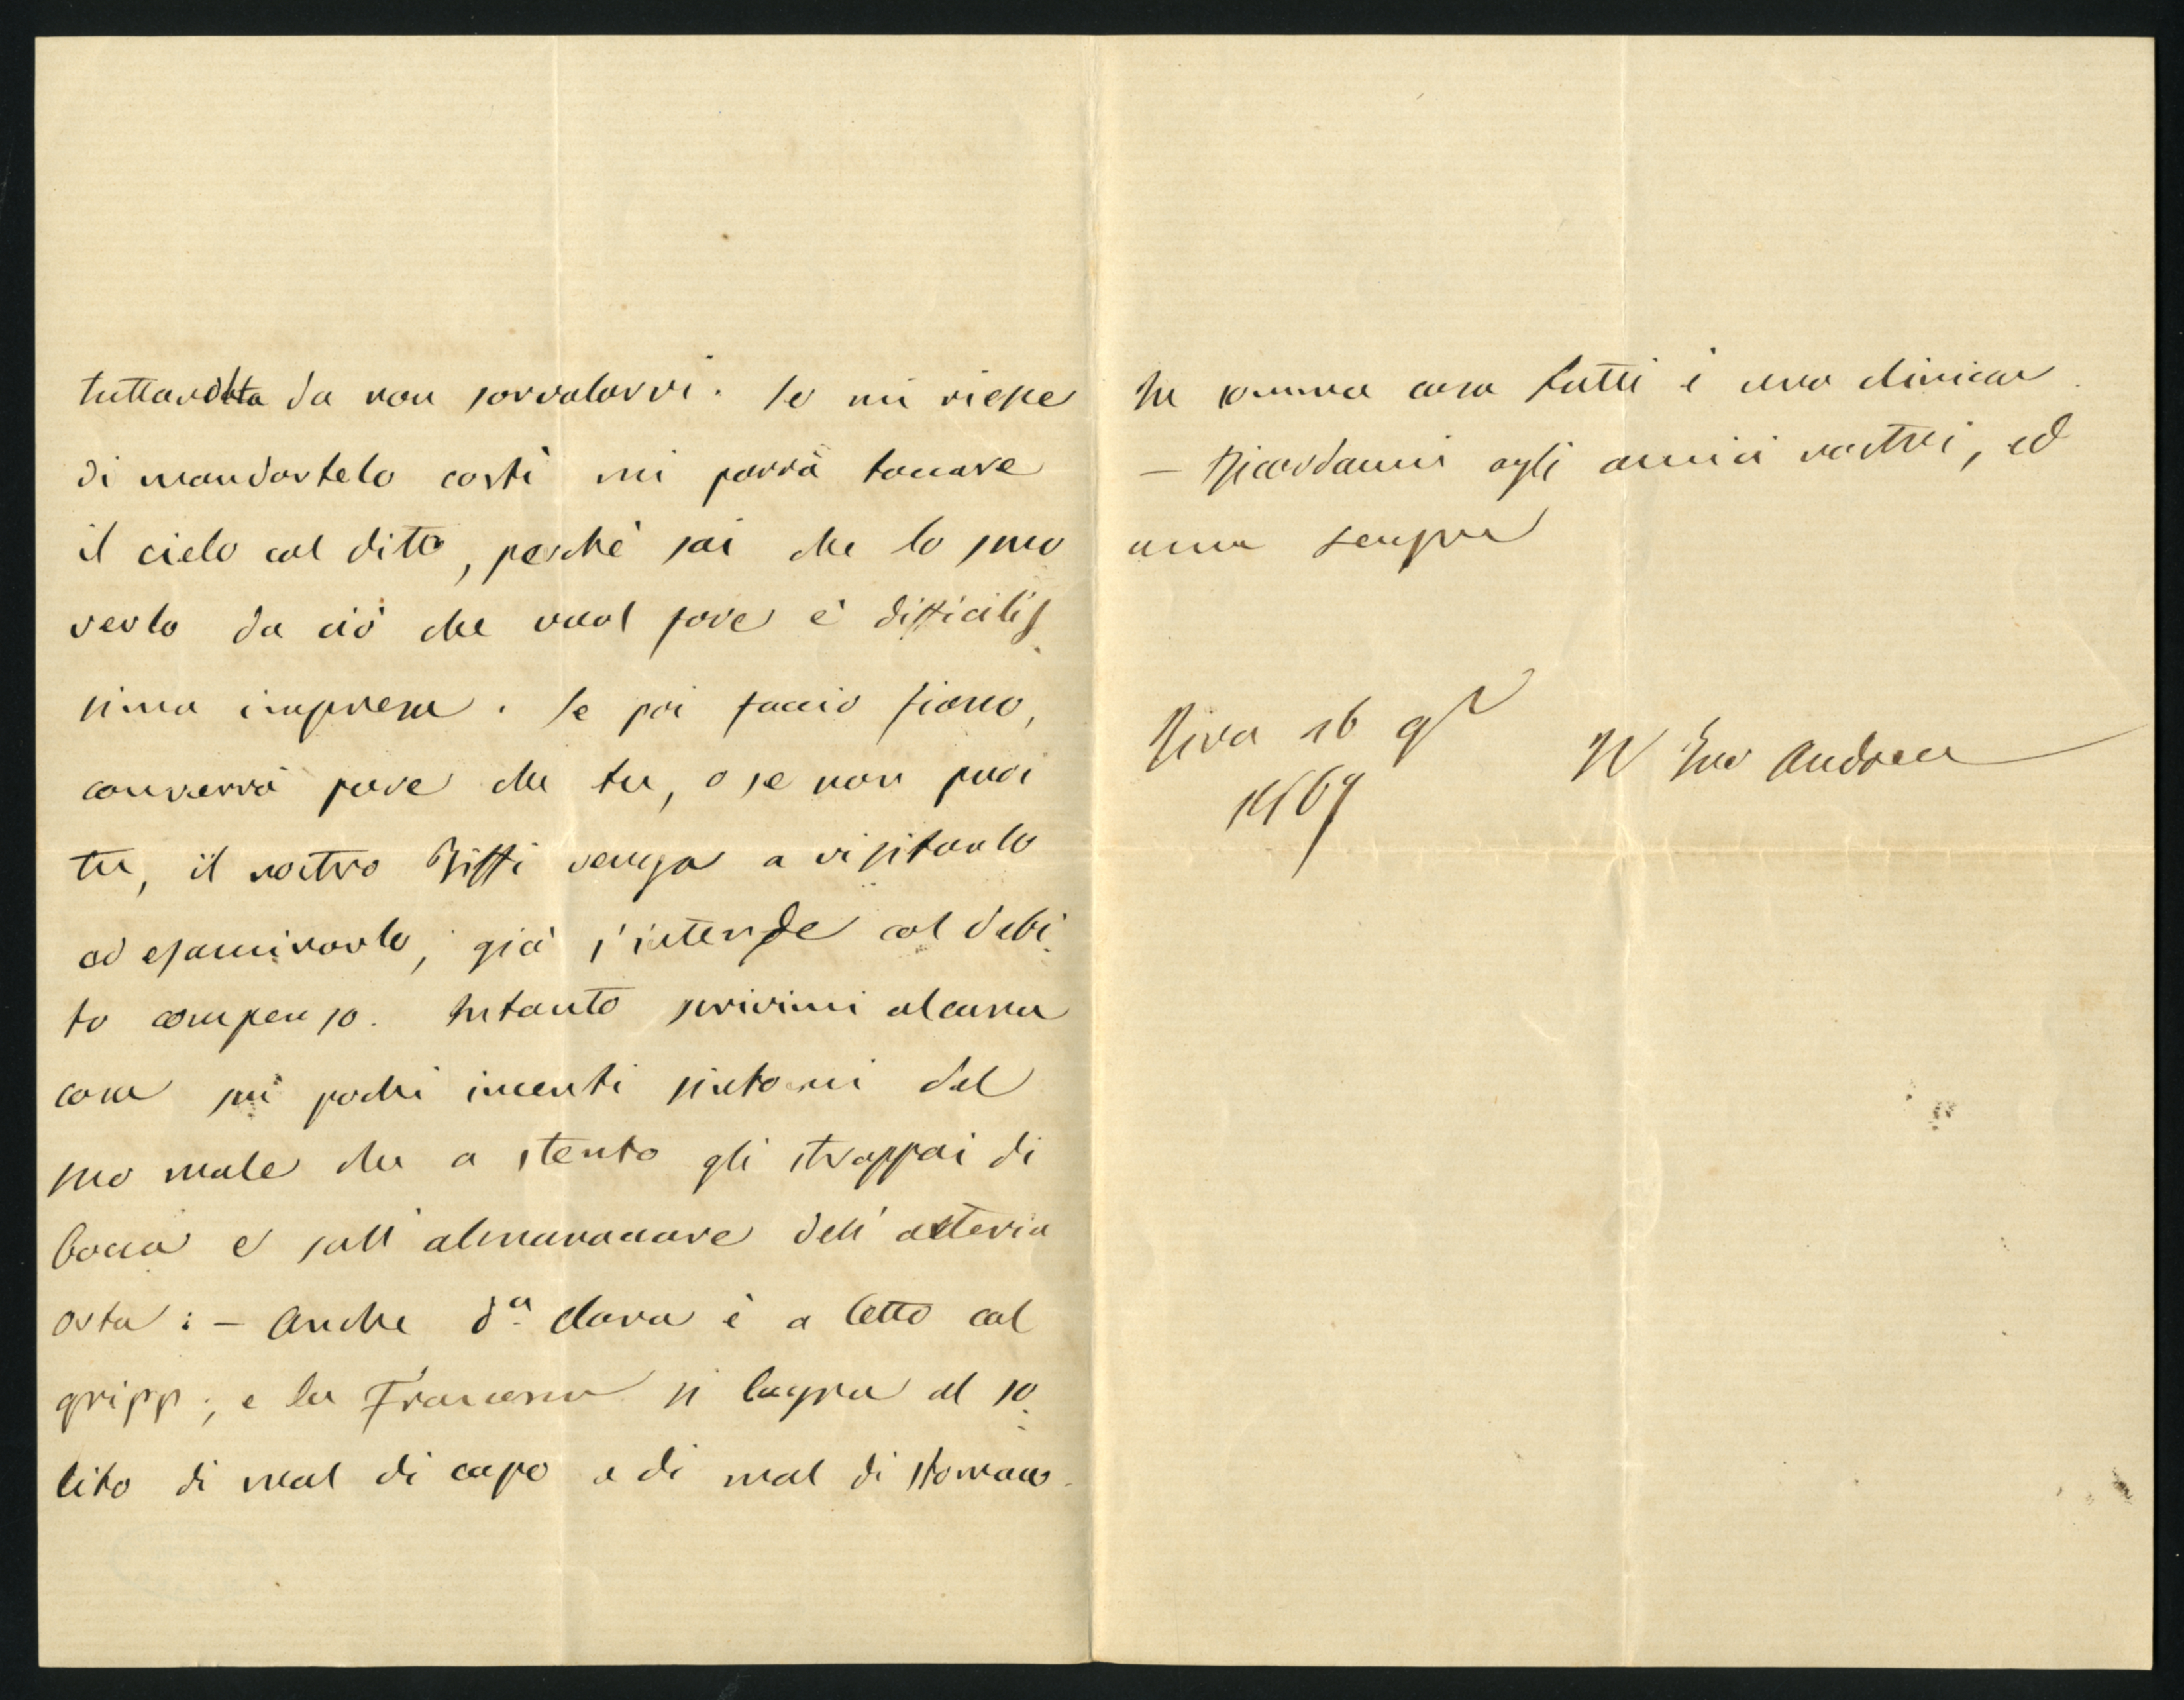 tuttavolta da non sorvolarvi. Se mi riesce
di mandartelo costì mi parrà toccare
il cielo col dito, perchè sai che lo smo
verlo da ciò che vuol fare è difficilis
sima impresa. Se poi faccio fiasco,
converrà pure che tu, o se non puoi
tu, il nostro Biffi venga a visitarlo
ad esaminarlo, già s'intende col debi
to compenso. Intanto scrivimi alcuna
cosa sui pochi incerti sintomi del
suo male che a stento gli strappai di
bocca e sull'almanaccare dell'arteria
orta: – Anche dª Clara è a letto col
gripp; e la Francesca si lagna al so
lito di mal di capo e di mal di stomaco.
In somma casa tutti è una clinica.
– Ricordami agli amici nostri, ed
ama sempre
Riva 16 9r
1869
Il tuo Andrea